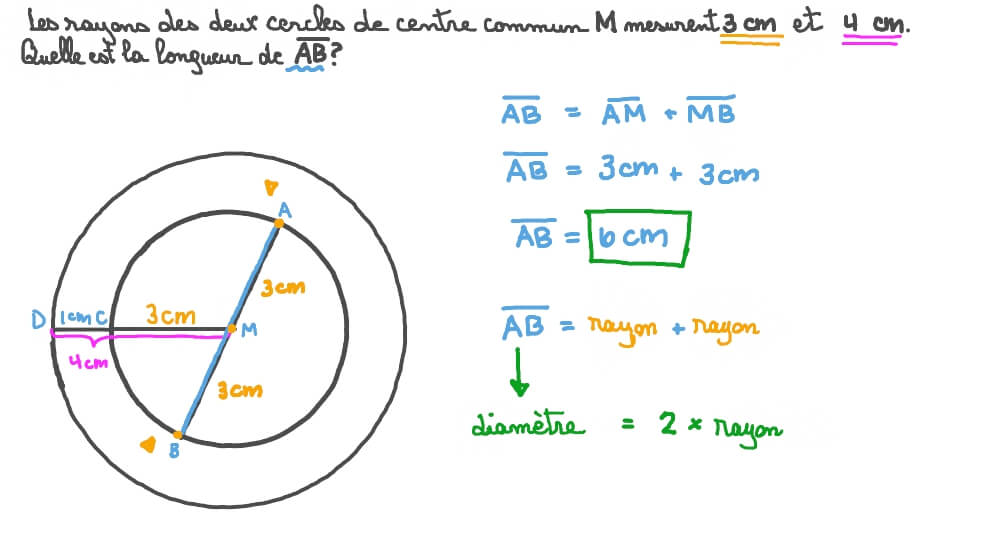 Les rayons des deux cercles de centre commun M mesurent 3 cm et 4 cm.
Quelle est la longueur de AB?
AB = AM + MB
AB = 3cm + 3cm
AB = 6cm
AB = rayon + rayon
diamètre = 2 × rayon
A
3cm
D 1cm C 3cm M
4cm
3cm
B